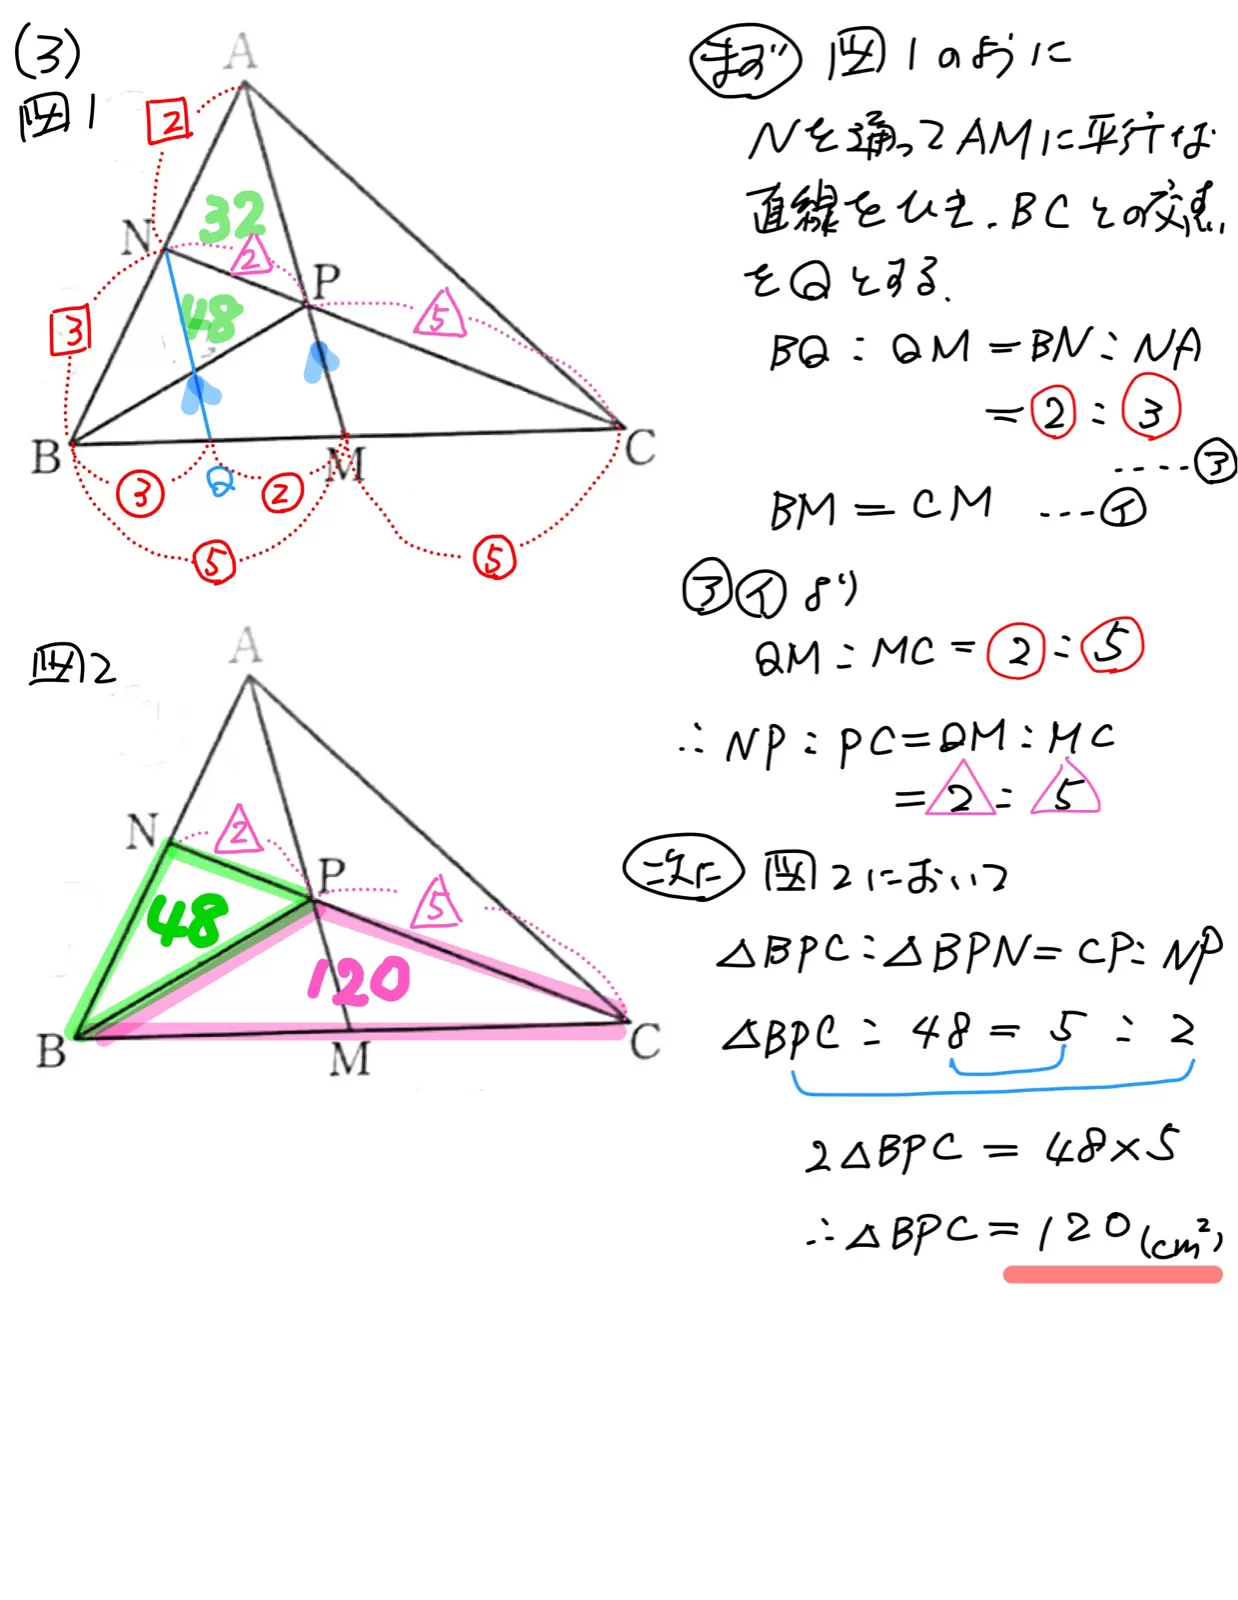 (3)
図1
A
2
32
N
2
P
5
3
48
B
Q
M
C
3
2
5
5
図2
A
N
2
P
5
48
120
B
M
C
まず 図1のように
Nを通ってAMに平行な
直線をひき、BCとの交点
をQとする.
BQ:QM=BN:NA
=②:③
....③
BM=CM ...④
③④より
QM:MC=②:⑤
∴NP:PC=QM:MC
=2:5
次に 図2において
△BPC:△BPN=CP:NP
△BPC:48=5:2
2△BPC=48×5
∴△BPC=120(cm²)